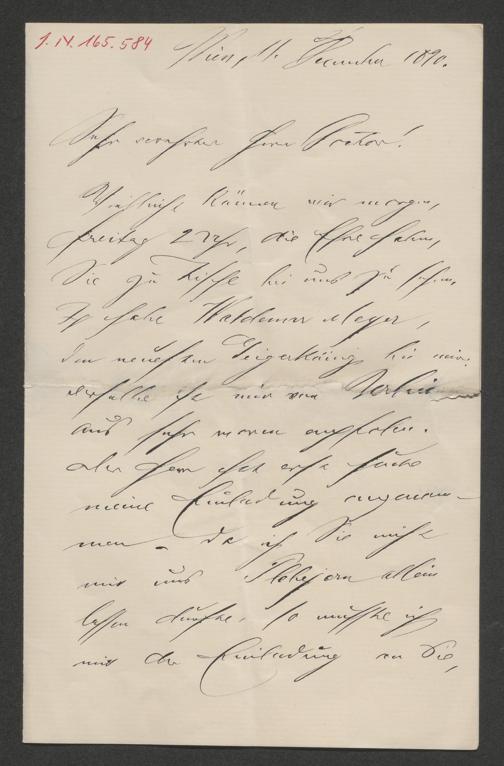 J.N. 165.584
Wien, 11. Dezember 1890.
Sehr verehrter Herr Doktor!
Möchten Sie können wir morgen,
Freitag 2 Uhr, die Ehre haben,
Sie zu Tische bei uns zu sehen.
Ich habe Waldemar Meyer,
den neuesten Geigerkönig bei mir.
derselbe ist mir von Berlin
aus sehr warm empfohlen.
Der Herr hat erst heute
meine Einladung angenom-
men. Da ich Sie nicht
mit uns Plebejern allein
lassen durfte, so mußte ich
mit der Einladung an Sie,